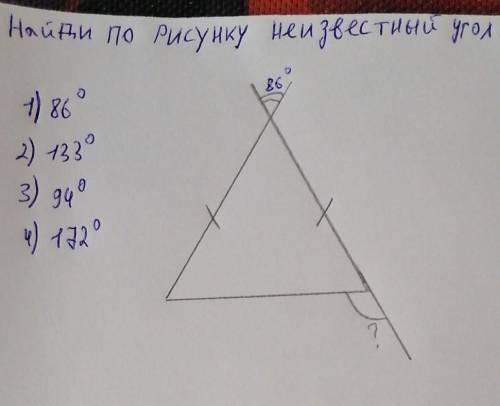 Найди по рисунку неизвестный угол
86°
1) 86°
2) 133°
3) 94°
4) 172°
?